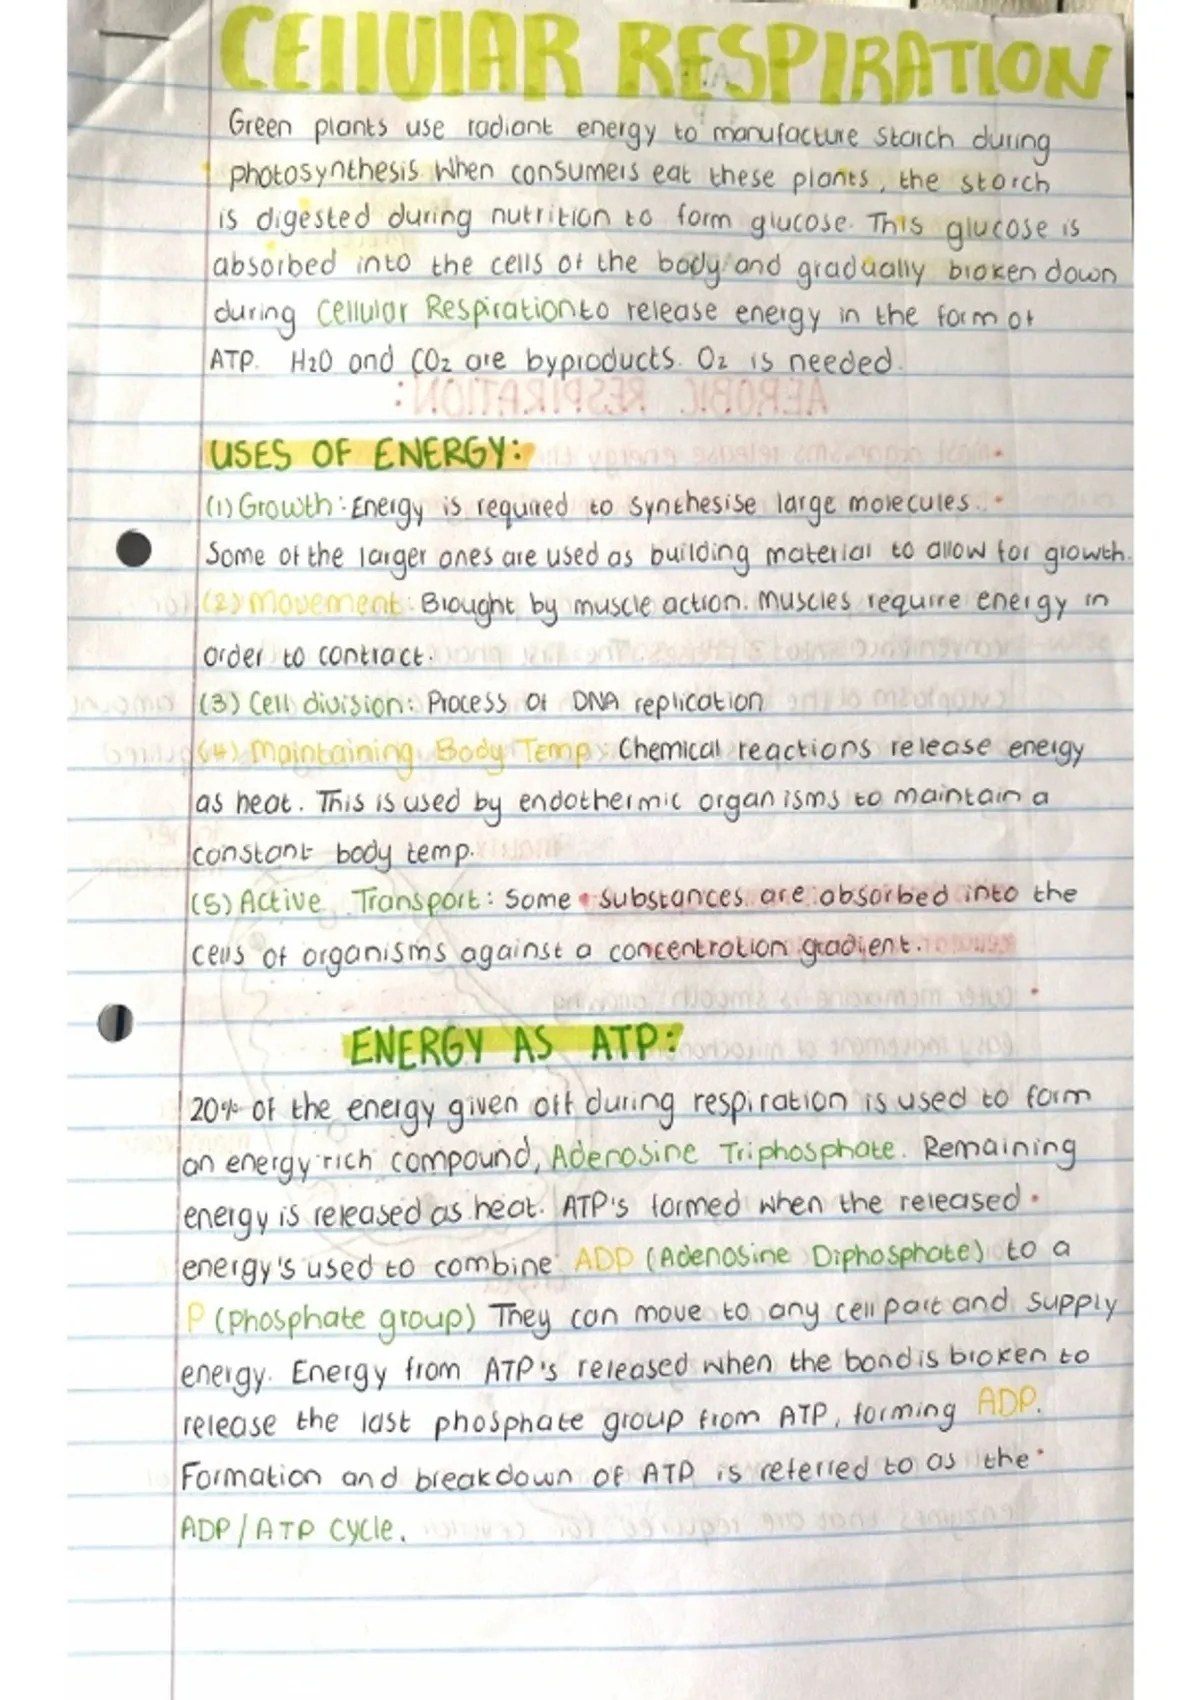 CELLULAR RESPIRATION
Green plants use radiant energy to manufacture starch during
photosynthesis. When consumers eat these plants, the starch
is digested during nutrition to form glucose. This glucose is
absorbed into the cells of the body and gradually broken down
during Cellular Respiration to release energy in the form of
ATP. H2O and CO2 are byproducts. O2 is needed.
AEROBIC RESPIRATION:
USES OF ENERGY:
(1) Growth: Energy is required to synthesise large molecules.
Some of the larger ones are used as building material to allow for growth.
(2) Movement: Brought by muscle action. Muscles require energy in
order to contract.
(3) Cell division: Process of DNA replication
(4) Maintaining Body Temp: Chemical reactions release energy
as heat. This is used by endothermic organisms to maintain a
constant body temp.
(5) Active Transport: Some substances are absorbed into the
cells of organisms against a concentration gradient.
ENERGY AS ATP:
20% of the energy given off during respiration is used to form
an energy rich compound, Adenosine Triphosphate. Remaining
energy is released as heat. ATP's formed when the released
energy's used to combine ADP (Adenosine Diphosphate) to a
P (phosphate group) They can move to any cell part and supply
energy. Energy from ATP's released when the bond is broken to
release the last phosphate group from ATP, forming ADP.
Formation and breakdown of ATP is referred to as the
ADP/ATP cycle.